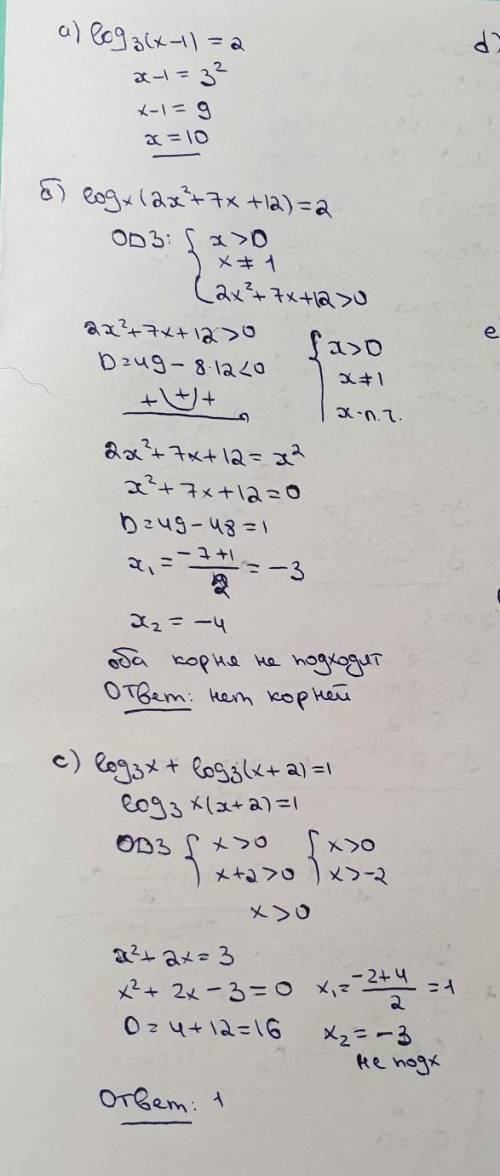 а) log₃(x-1) = 2
x-1 = 3²
x-1 = 9
x = 10
d)
б) logₓ(2x²+7x+12) = 2
ОДЗ: { x>0
x≠1
2x²+7x+12>0
2x²+7x+12>0
D=49-8·12<0
+ + +
{ x>0
x≠1
x-л.ч.
e
2x²+7x+12 = x²
x²+7x+12=0
D=49-48=1
x₁ = (-7+1)/2 = -3
x₂ = -4
оба корня не подходит
Ответ: нет корней
c) log₃x + log₃(x+2)=1
log₃ x(x+2)=1
ОДЗ { x>0 { x>0
x+2>0 x>-2
x>0
x²+2x=3
x²+2x-3=0 x₁=(-2+4)/2=1
D=4+12=16 x₂=-3
не подх
Ответ: 1